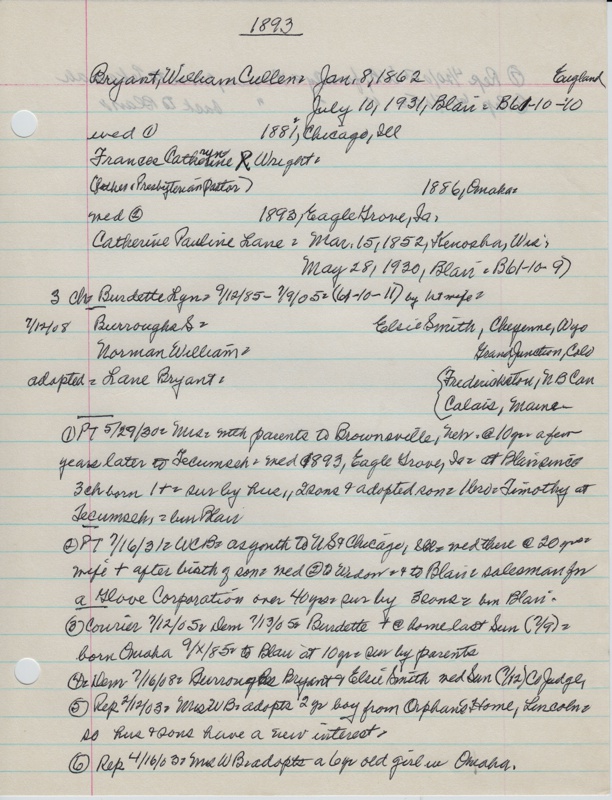 1893
Bryant, William Cullen = Jan. 8, 1862 England
July 10, 1931, Blair = B61-10-10
wed ① 1881, Chicago, Ill
Frances Catherine R Wright =
(father = Presbyterian Pastor) 1886, Omaha =
wed ② 1893, Eagle Grove, Ia.
Catherine Pauline Lane = Mar. 15, 1852, Kenosha, Wis;
May 28, 1930, Blair = B61-10-9)
3 Ch = Burdette Lyn = 9/12/85 - 7/9/05 = (61-10-11) by 1st wife =
7/12/08 Burroughs S = Elsie Smith, Cheyenne, Wyo
Norman William = Grand Junction, Colo
adopted = Lane Bryant = Fredericton, NB Can
Calais, Maine
① PT 5/29/30 = Mrs = with parents to Brownsville, Nebr. @ 10 yr = a few
years later to Tecumseh = wed 1893, Eagle Grove, Ia = at Blair since
3 ch born 1 + = sur by hus, 2 sons & adopted son = 1 bro = Timothy at
Tecumseh, = bur Blair
② PT 7/16/31 = WCB = as youth to US & Chicago, Ill = wed there @ 20 yrs =
wife + after birth of son = wed ② = & to Blair = salesman for
a Glove Corporation over 40 yrs = sur by 3 sons = bur Blair.
③ Courier 7/12/05 & Dem 7/13/05 = Burdette + @ home last Sun (7/9) =
born Omaha 9/X/85 = to Blair at 10 yr = sur by parents
④ = Dem 7/16/08 = Burroughs Bryant & Elsie Smith wed Sun (7/12) Co Judge,
⑤ Rep 2/12/03 = Mrs WB = adopts 2 yr boy from Orphans Home, Lincoln =
so hus & sons have a new interest =
⑥ Rep 4/16/03 = Mrs WB = adopts a 6 yr old girl in Omaha.